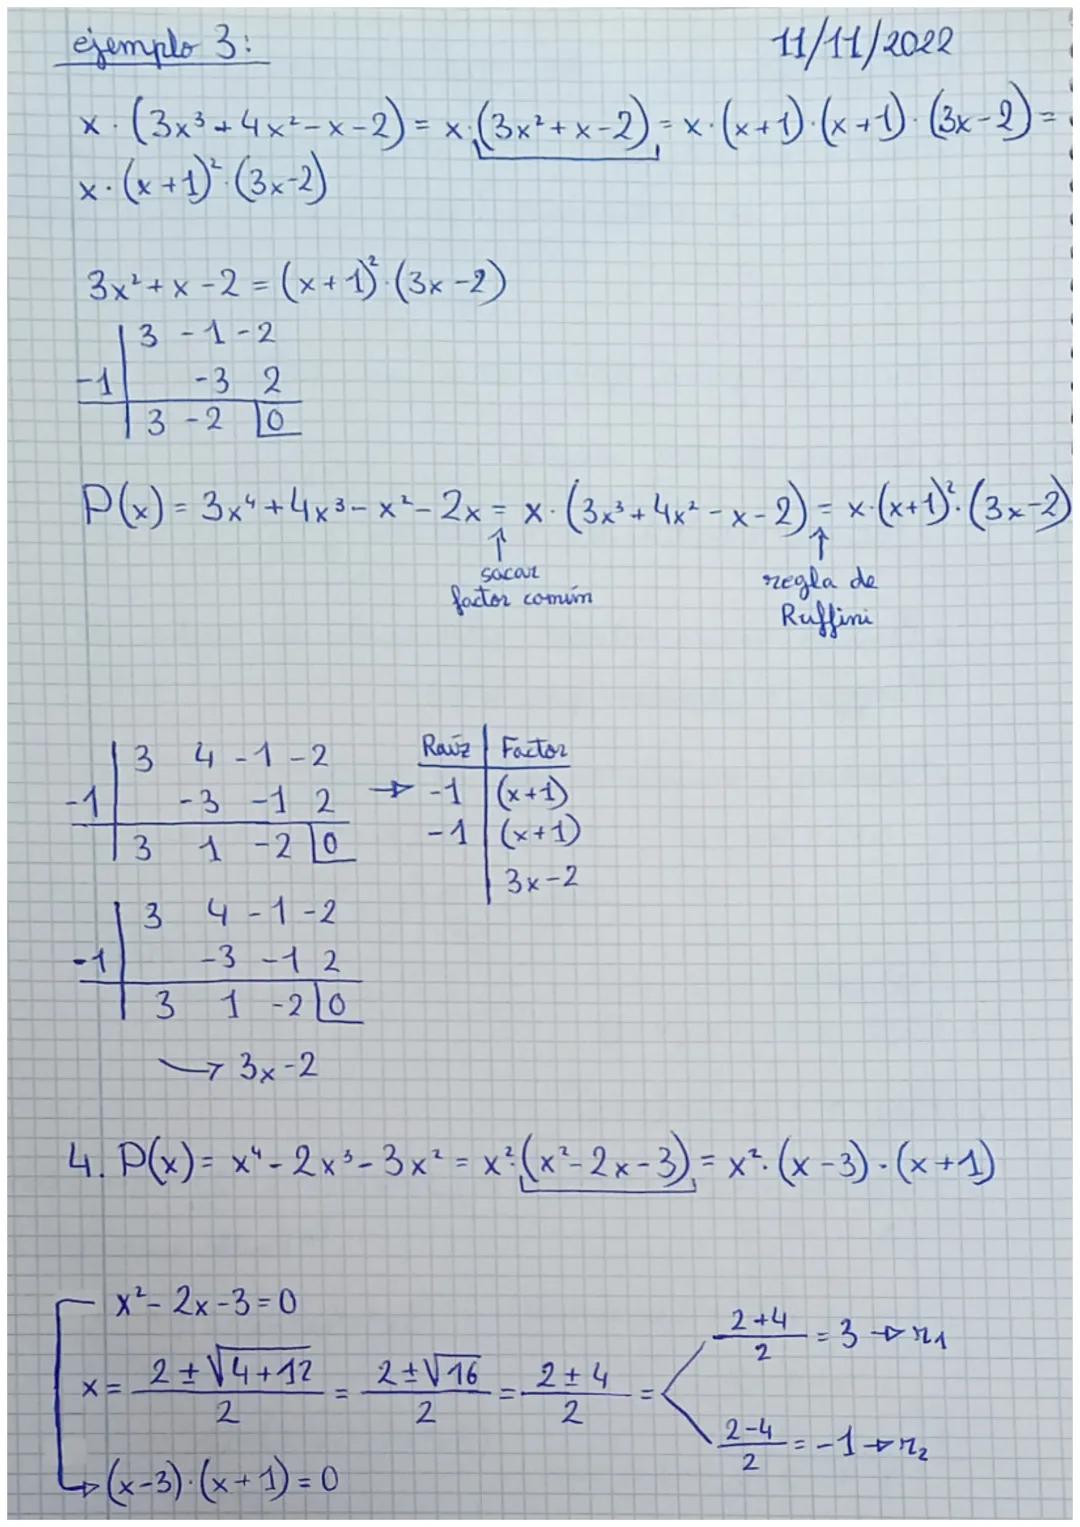 ejemplo 3: 11/11/2022
x · (3x³+4x²-x-2) = x·(3x²+x-2) = x·(x+1)·(x+1)·(3x-2) =
x·(x+1)²·(3x-2)
3x²+x-2 = (x+1)²·(3x-2)
3 -1 -2
-1 -3 2
3 -2 0
P(x) = 3x⁴+4x³-x²-2x = x·(3x³+4x²-x-2) = x·(x+1)²·(3x-2)
↑ ↑
sacar regla de
factor común Ruffini
3 4 -1 -2 Raíz Factor
-1 -3 -1 2 → -1 (x+1)
3 1 -2 0 -1 (x+1)
3x-2
3 4 -1 -2
-1 -3 -1 2
3 1 -2 0
→ 3x-2
4. P(x) = x⁴-2x³-3x² = x²·(x²-2x-3) = x²·(x-3)·(x+1)
x²-2x-3=0
x = (2±√(4+12))/2 = (2±√16)/2 = (2±4)/2 = (2+4)/2 = 3 → r₁
(2-4)/2 = -1 → r₂
→ (x-3)·(x+1)=0